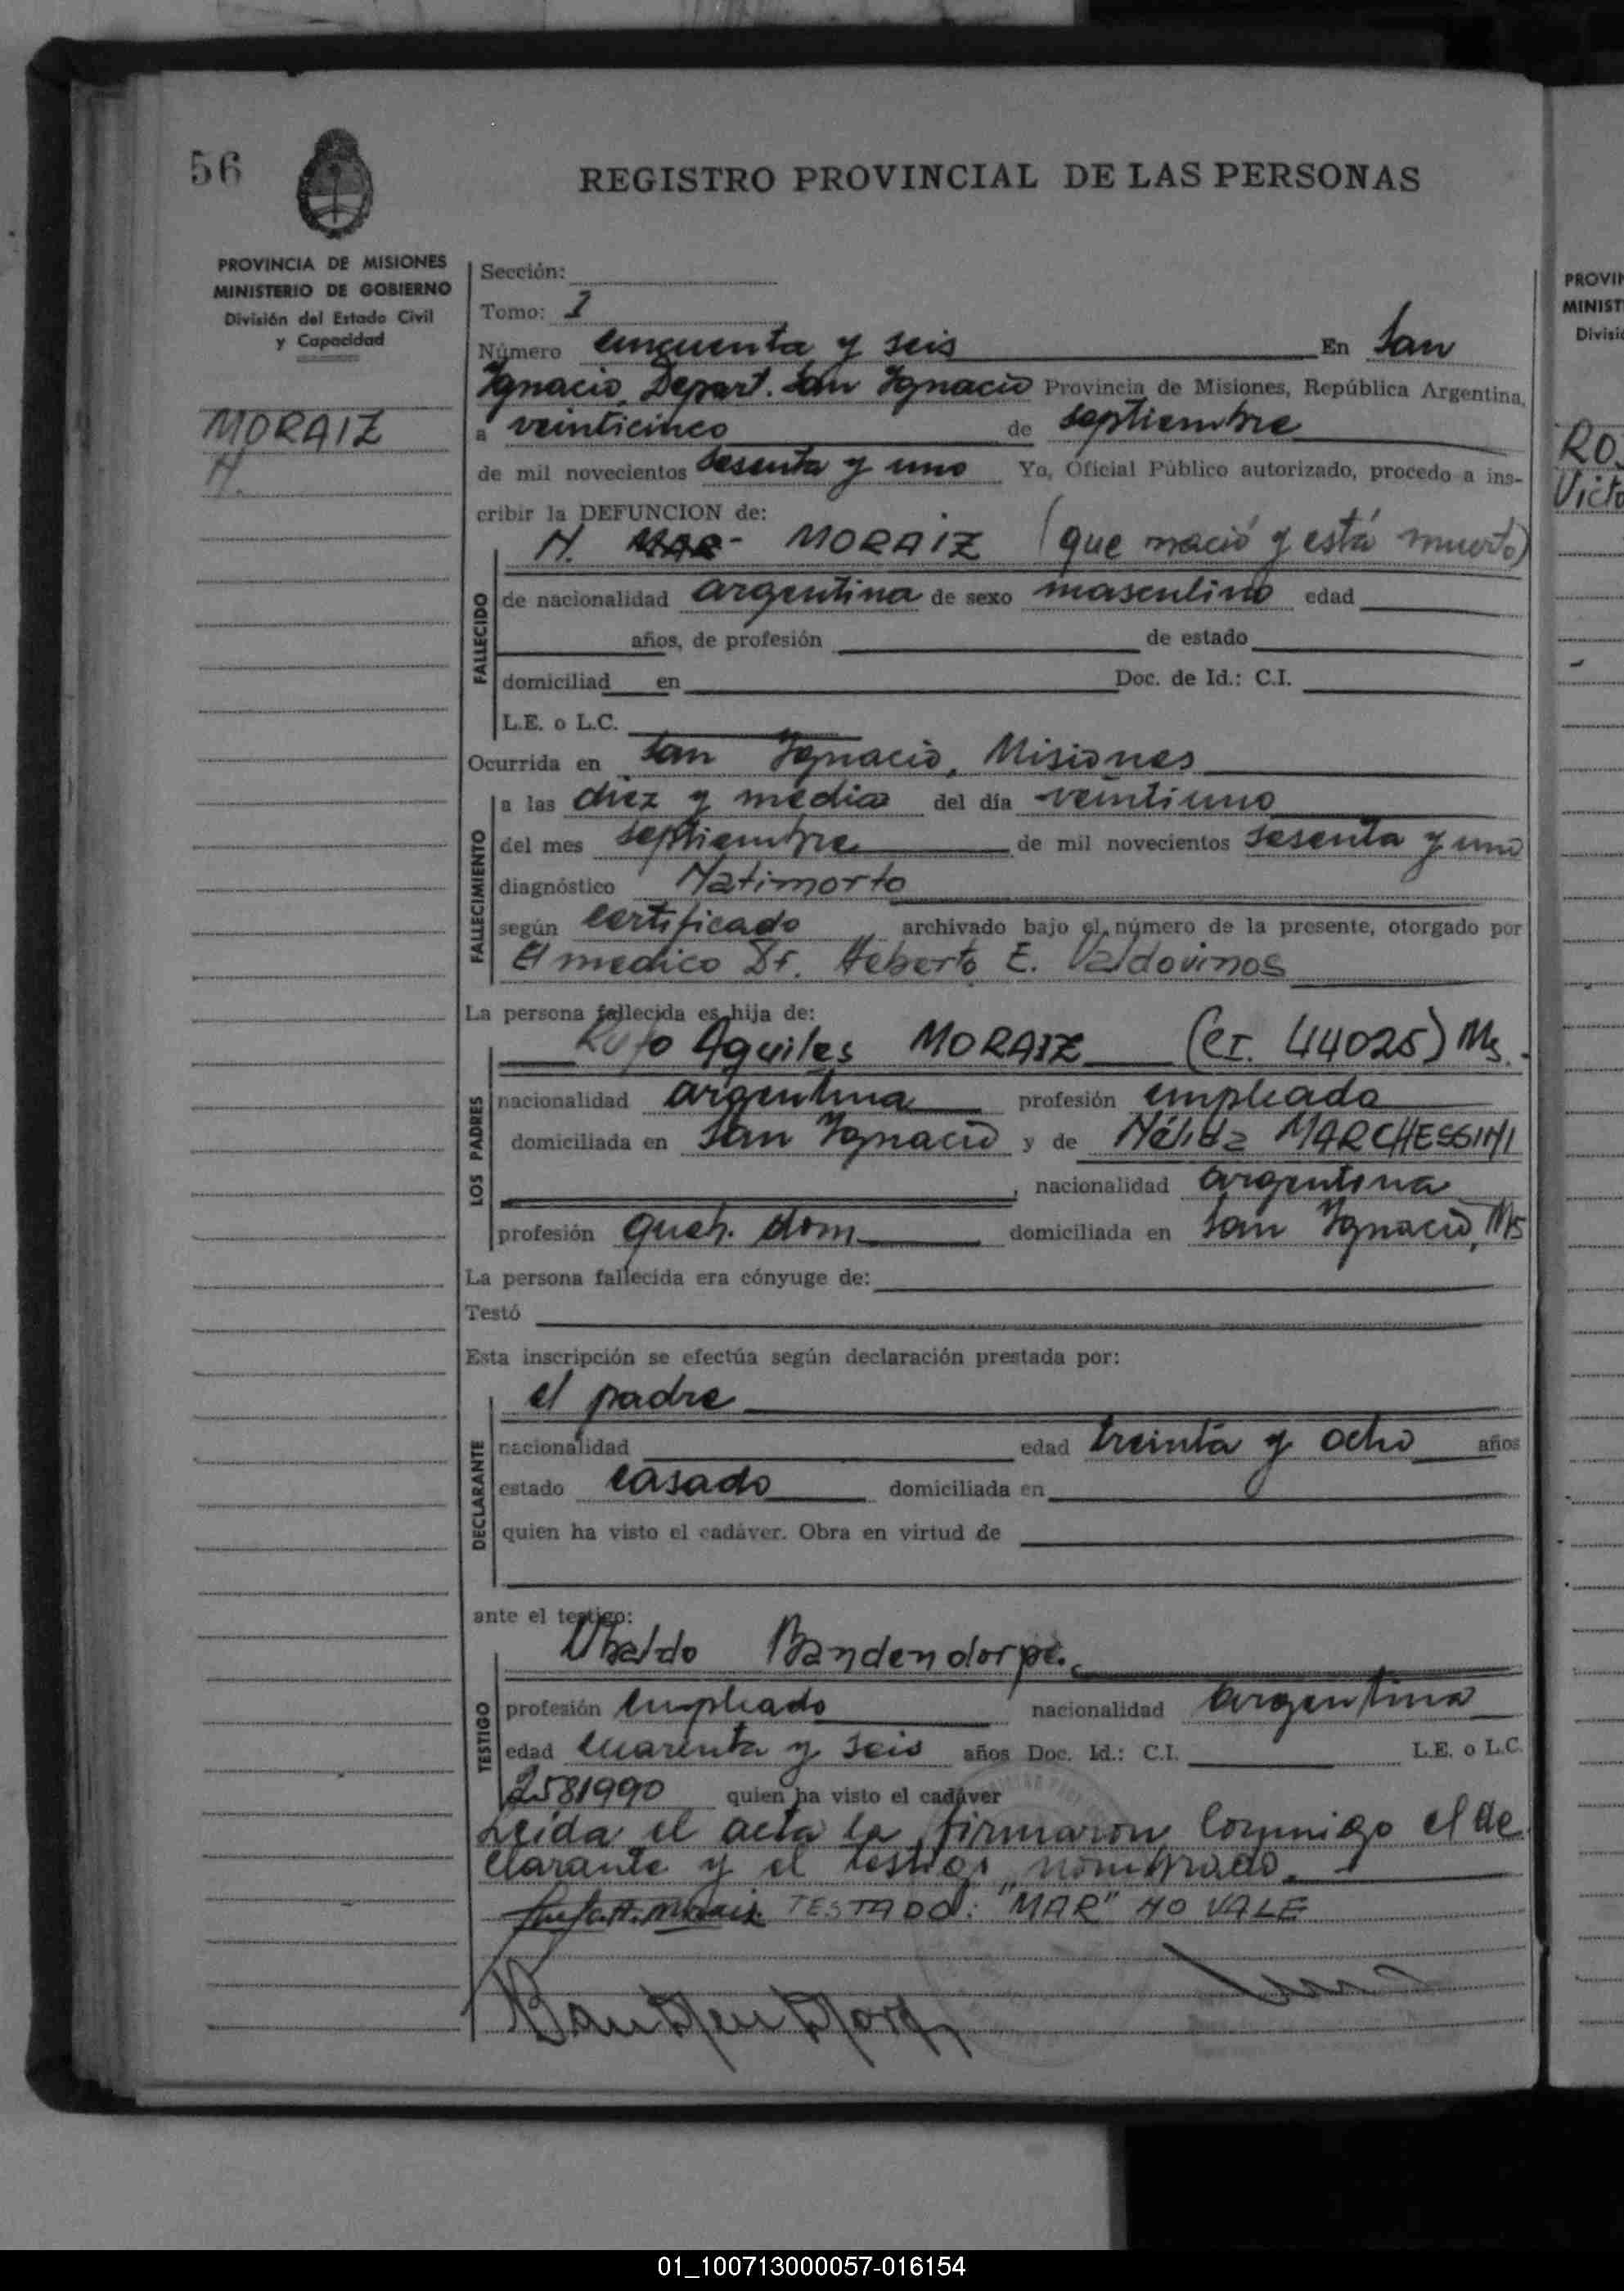 56
REGISTRO PROVINCIAL DE LAS PERSONAS
PROVINCIA DE MISIONES
MINISTERIO DE GOBIERNO
División del Estado Civil
y Capacidad
MORAIZ
N.
Sección:
Tomo: 1
Número cincuenta y seis En San
Ignacio, Depart. San Ignacio Provincia de Misiones, República Argentina,
a veinticinco de septiembre
de mil novecientos sesenta y uno Yo, Oficial Público autorizado, procedo a ins-
cribir la DEFUNCION de:
N. MAR- MORAIZ (que nació y está muerto)
FALLECIDO
de nacionalidad argentina de sexo masculino edad
años, de profesión de estado
domiciliad en Doc. de Id.: C.I.
L.E. o L.C.
Ocurrida en San Ignacio, Misiones
FALLECIMIENTO
a las diez y media del día veintiuno
del mes septiembre de mil novecientos sesenta y uno
diagnóstico Natimorto
según certificado archivado bajo el número de la presente, otorgado por
El medico Dr. Heberto E. Valdovinos
La persona fallecida es hija de:
LOS PADRES
Rufo Aquiles MORAIZ (CI. 44025) Ms.
nacionalidad argentina profesión empleado
domiciliada en San Ignacio y de Nélida MARCHESSINI
, nacionalidad argentina
profesión queh. dom domiciliada en San Ignacio, Ms
La persona fallecida era cónyuge de:
Testó
Esta inscripción se efectúa según declaración prestada por:
DECLARANTE
el padre
nacionalidad edad treinta y ocho años
estado casado domiciliada en
quien ha visto el cadáver. Obra en virtud de
ante el testigo:
TESTIGO
Ubaldo Bandendorpe.
profesión empleado nacionalidad argentina
edad cuarenta y seis años Doc. Id.: C.I. L.E. o L.C.
2581990 quien ha visto el cadáver
Leida el acta la firmaron conmigo el de
clarante y el testigo nombrado.
TESTADO: "MAR" NO VALE
PROVIN
MINIST
Divisi
RO
Vict
01_100713000057-016154